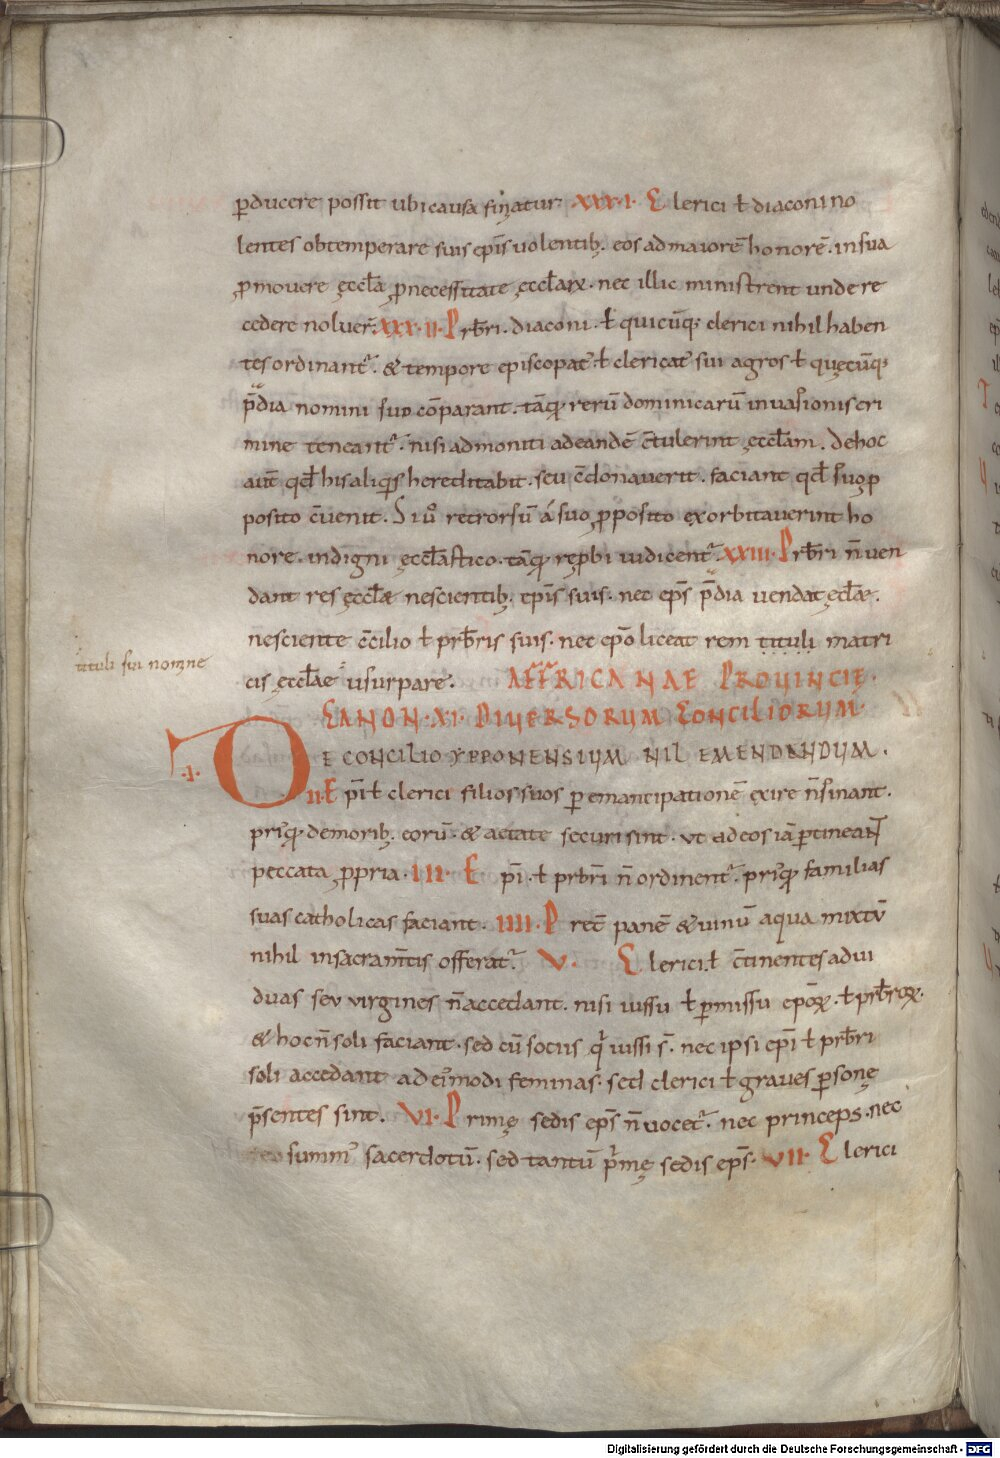 p̱ducere possit ubi causa finatur· XXXI· Clerici ł diaconi no
lentes obtemperare suis epīs uolentib; eos ad maiorē honorē· in sua
ꝓmovere ęccła ꝓ necessitate ęccłarꝝ· nec illic ministrent unde re
cedere noluer̄· XXX·II· Prbr̄i· diaconi· ł quicūq; clerici nihil haben
tes ordinant᷑· & tempore episcopat᷑· ł clericat᷑ sui agros ł quęcūq;
p̄dia nomini suo cōparant· tāq̄ rerū dominicarū inuasionis cri
mine teneant᷑· nisi admoniti adeandē c̄tulerint ęccłam· de hoc
aut̄ qd̄ his aliquis hereditabit· seu c̄donauerit· faciant qd̄ suo ꝓ
posito c̄uenit· Si ů retrorsū á suo ꝓposito exorbitauerint ho
nore· indigni ęccłastico· tāq̄ reꝓbi iudicent᷑· XXIII· Prbr̄i n̄ uen
dant res ęccłæ nescientib; epīs suis· nec ep̄s p̄dia uendat ęcłæ·
nesciente c̄cilio ł prbr̄is suis· nec epō liceat rem tituli matri
tituli sui nomne
cis ęccłae usurpare· AFFRICANAE PROUINCIĘ·
CANON·XI· DIUERSORUM CONCILIORUM
·I· DE CONCILIO YPPONENSIUM NIL EMENDENDUM·
II· Epī ł clerici filios suos p̱ emancipationē exire n̄ sinant·
priꝰq̄ de morib; eorū· & aetate securi sint· ut ad eos iā p̱tineant
peccata ꝓpria· III· Epī· ł prbr̄i n̄ ordinent᷑· priꝰq̄ familias
suas catholicas faciant· IIII· Preť panē & uinū aqua mixtū
nihil in sacram̄tis offerat᷑· V· Clerici· ł c̄tinentes ad ui
duas seu virgines n̄ accedant· nisi iussu ł p̱missu epōꝝ· ł prbr̄oꝝ·
& hoc n̄ soli faciant· sed cū sociis q̇ iussi s̄· nec ipsi epī ł prbr̄i
soli accedant ad eiꝰmodi feminas· sed clerici ł graues p̱sonę
p̄sentes sint· VI· Primę sedis ep̄s n̄ uocet᷑· nec princeps· nec
summꝰ sacerdotū· sed tantū p̍mę sedis ep̄s· VII· Clerici
Digitalisierung gefördert durch die Deutsche Forschungsgemeinschaft - DFG